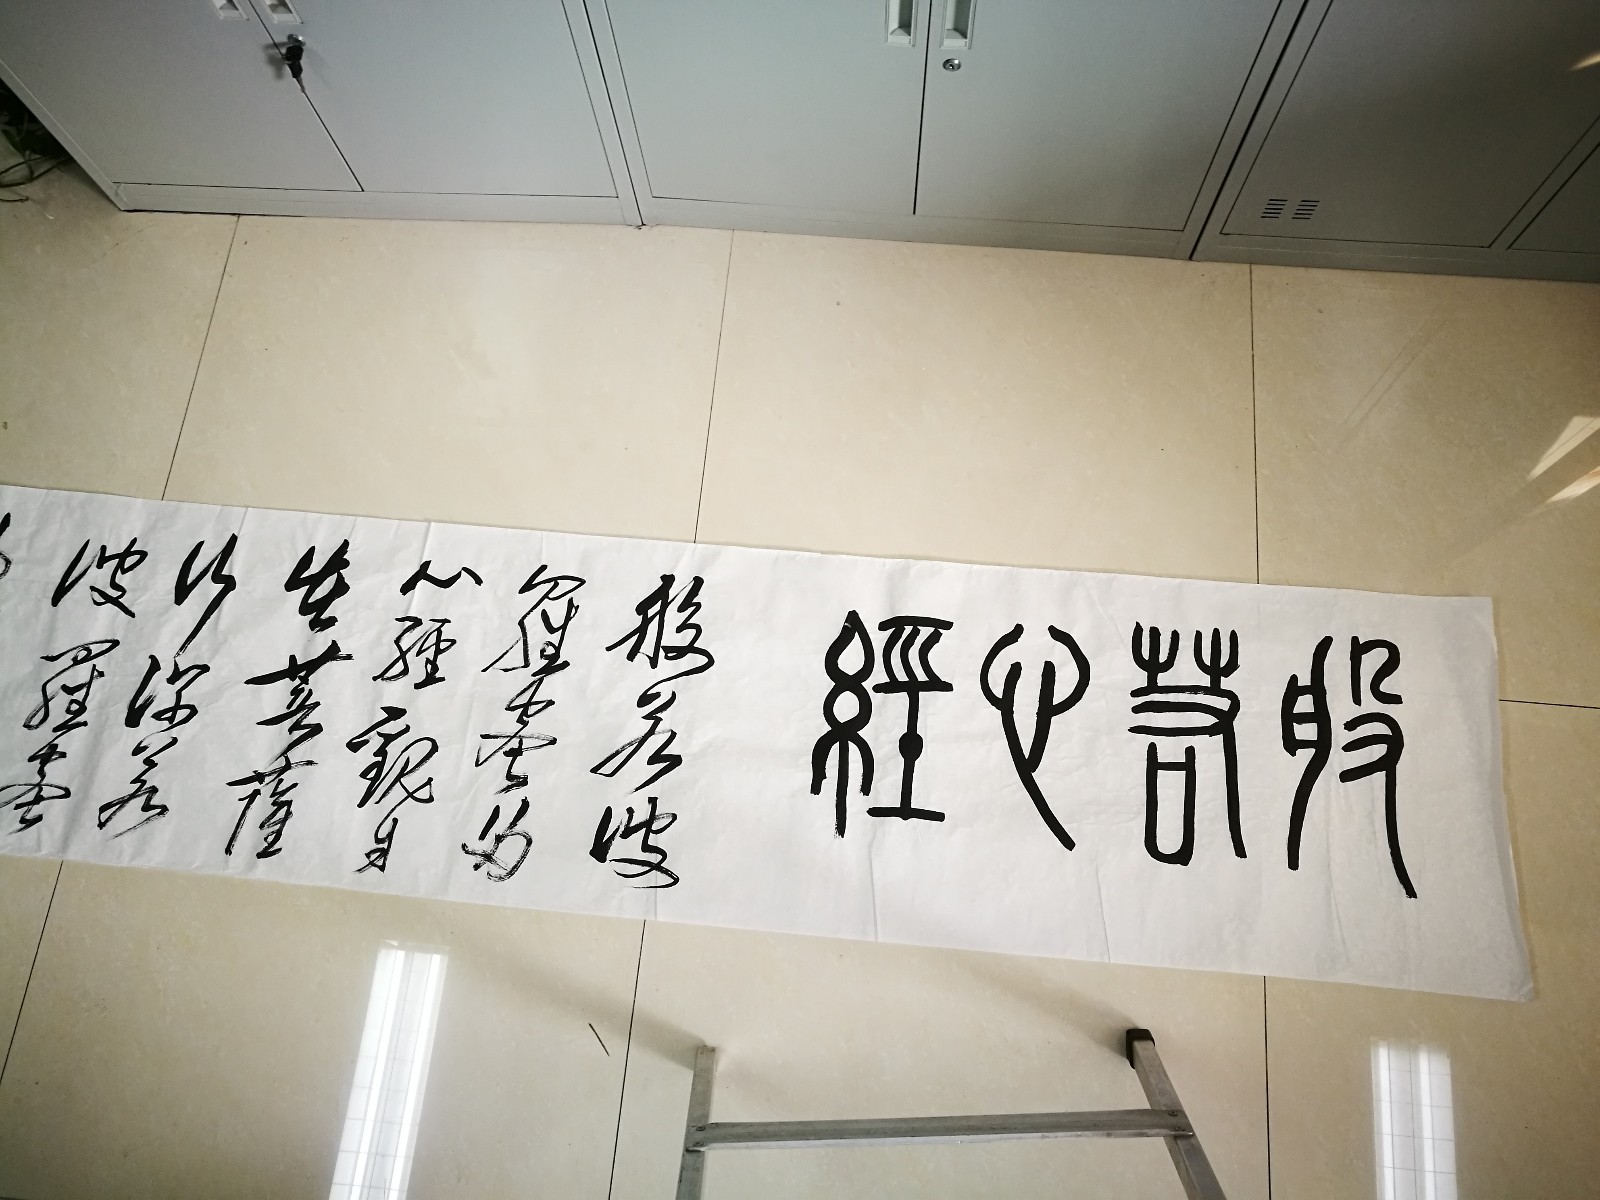 般若心經
般若波
羅蜜多
心經觀自
在菩薩
行深若
波羅蜜